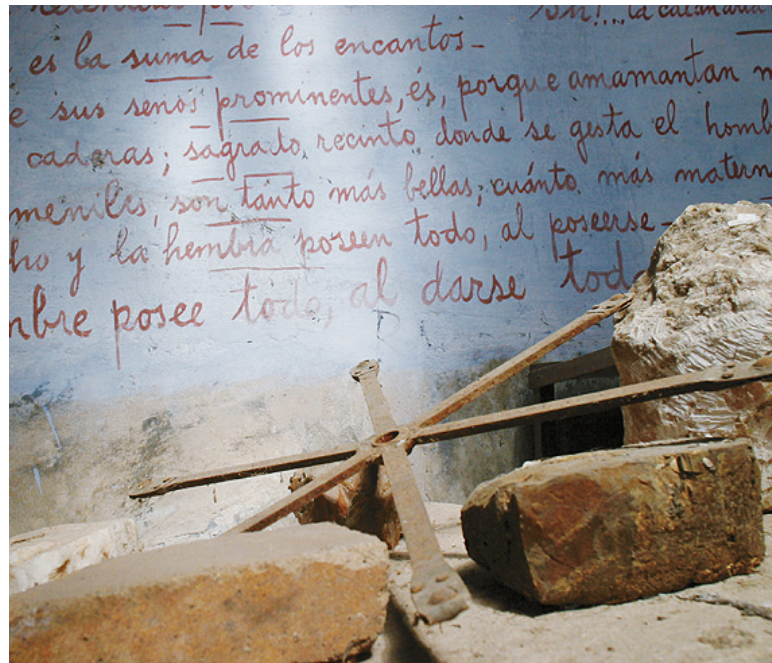 Sh!... la
es la suma de los encantos-
e sus senos prominentes, és, porque amamantan
caderas; sagrato, recinto, donde se gesta el homb
meniles, son tánto más bellas; cuánto más matern
ho y la hembra poseen todo, al poseerse-
mbre posee todo, al darse todo